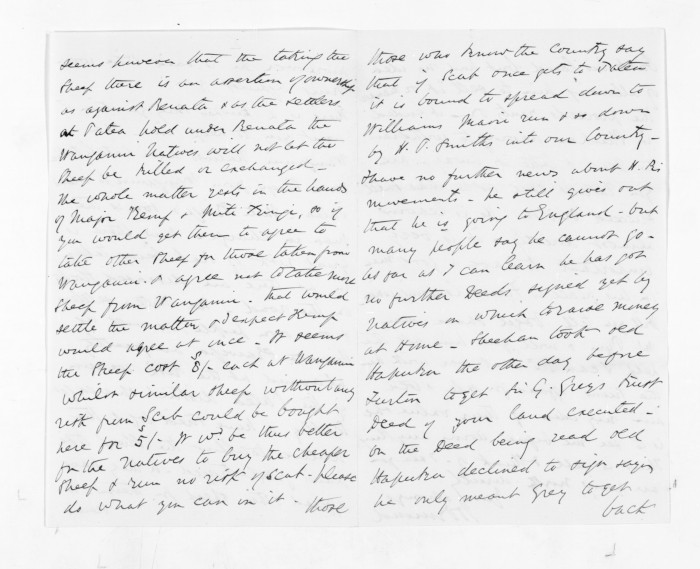 seems however that the taking the
sheep there is an assertion of ownership
as against Renata & as the settlers
at Patea hold under Renata the
Wanganui Natives will not let the
sheep be killed or exchanged -
The whole matter rests in the hands
of Major Kemp & Meti Kingi, so if
you would get them to agree to
take other sheep for those taken from
Wanganui & agree not to take more
sheep from Wanganui - that would
settle the matter & I expect Kemp
would agree at once - It seems
the sheep cost 8/- each at Wanganui
whilst similar sheep without any
risk from Scab could be bought
here for 5/- It wd. be thus better
for the Natives to buy the cheaper
sheep & run no risk of Scab - please
do what you can in it - those
those who know the Country say
that if Scab once gets to Patea
it is bound to spread down to
Williams Maori run & so down
by H. T. Smiths into our Country -
I have no further news about H. Rs
movements - he still gives out
that he is going to England - but
many people say he cannot go -
as far as I can learn he has got
no further Deeds signed yet by
Natives on which to raise money
at Home - Sheehan took old
Hapuka the other day before
Turton to get Sir G. Greys Trust
Deed of your land executed -
on the Deed being read old
Hapuka declined to sign saying
he only meant Grey to get
back